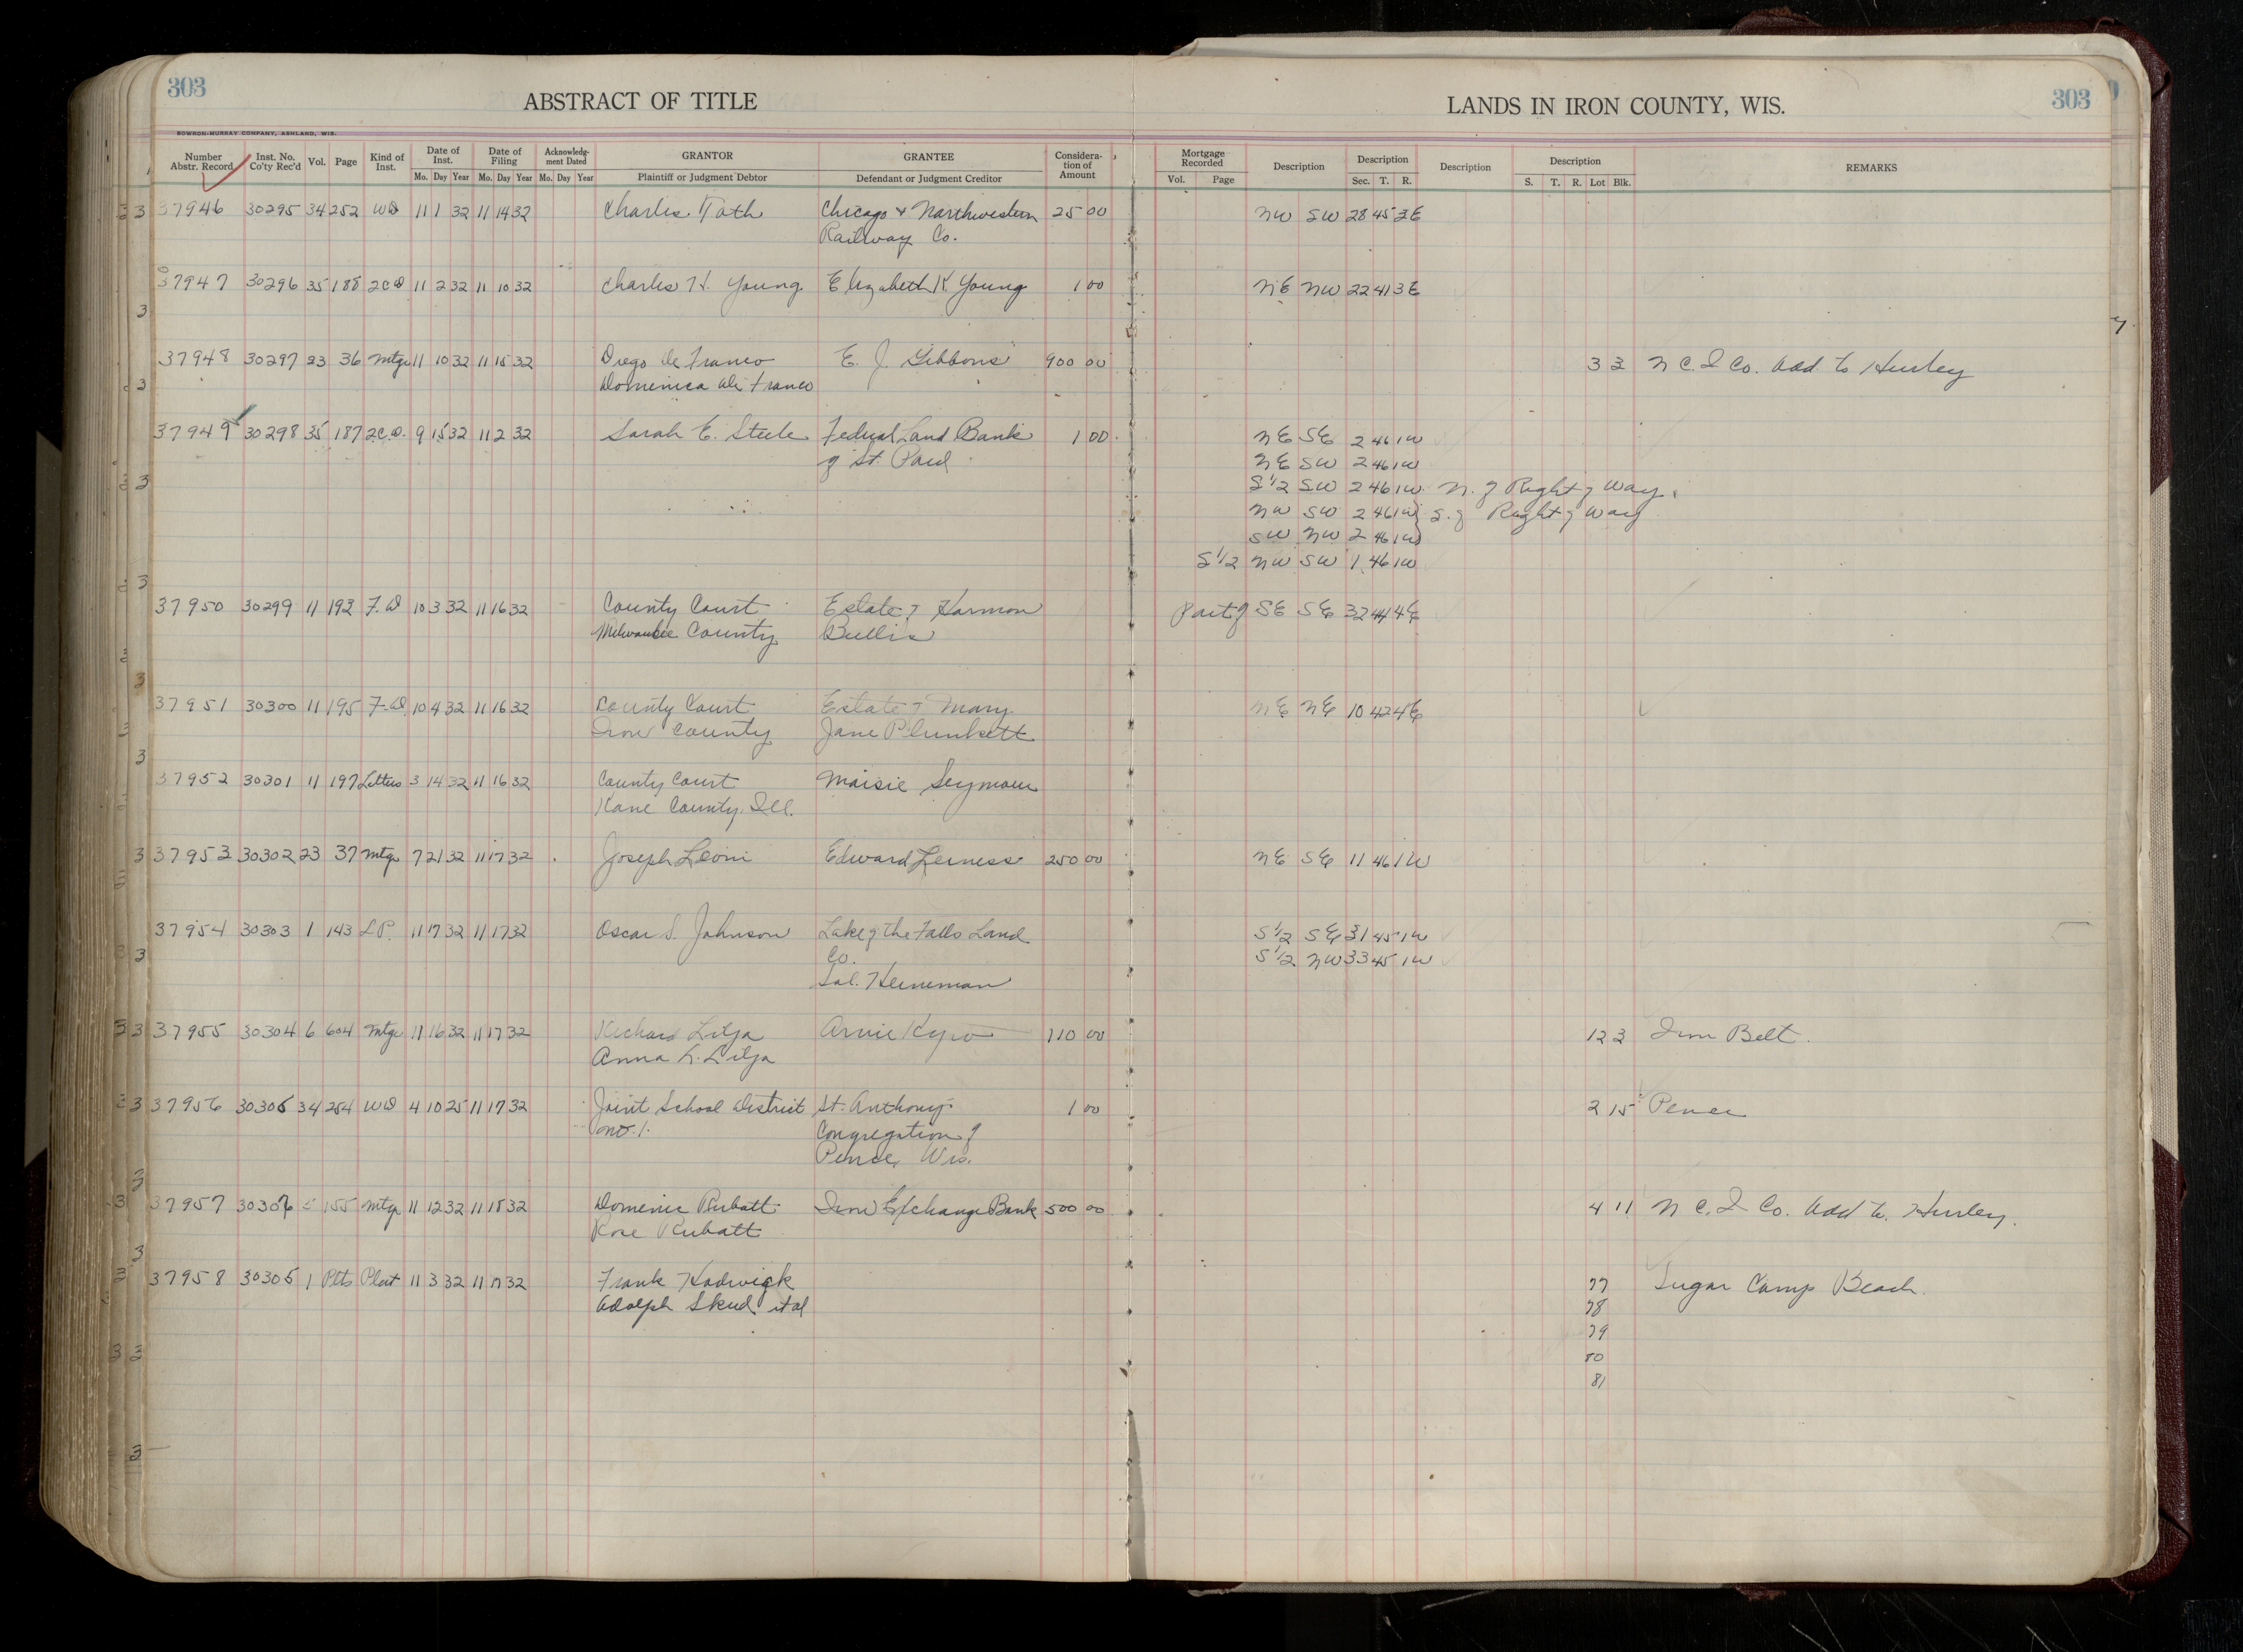 303
ABSTRACT OF TITLE
LANDS IN IRON COUNTY, WIS.
303
BOWRON-MURRAY COMPANY, ASHLAND, WIS.
Number Abstr. Record Inst. No. Co'ty Rec'd Vol. Page Kind of Inst. Date of Inst. Mo. Day Year Date of Filing Mo. Day Year Acknowledg-ment Dated Mo. Day Year GRANTOR Plaintiff or Judgment Debtor GRANTEE Defendant or Judgment Creditor Considera-tion of Amount Mortgage Recorded Vol. Page Description Description Sec. T. R. Description Description S. T. R. Lot Blk. REMARKS
37946 30295 34 252 WD 11 1 32 11 14 32 Charles Toth Chicago & Northwestern 25 00 NW SW 28 45 2E
Railway Co.
37947 30296 35 188 2CD 11 2 32 11 10 32 Charles H. Young Elizabeth K. Young 1 00 NE NW 22 41 3E
37948 30297 23 36 Mtge 11 10 32 11 15 32 Diego De Franco E. J. Gibbons 900 00 3 2 N C. I Co. Add to Hurley
Domenica De Franco
37949 30298 35 187 2C.D. 9 15 32 11 2 32 Sarah E. Steele Federal Land Bank 1 00 NE SE 2 46 1W
of St. Paul NE SW 2 46 1W
S 1/2 SW 2 46 1W N. of Right of Way
NW SW 2 46 1W S. of Right of Way
SW NW 2 46 1W
S 1/2 NW SW 1 46 1W
37950 30299 11 192 F.D 10 3 32 11 16 32 County Court Estate of Harmon Part of SE SE 32 44 4E
Milwaukee County Bullis
37951 30300 11 195 F.D. 10 4 32 11 16 32 County Court Estate of Mary NE NE 10 42 4E
Iron County Jane Plunkett
37952 30301 11 197 Letters 3 14 32 11 16 32 County Court Maisie Seymour
Kane County, Ill.
37953 30302 23 37 Mtge 7 21 32 11 17 32 Joseph Leoni Edward Lerness 250 00 NE SE 11 46 1W
37954 30303 1 143 L.P. 11 17 32 11 17 32 Oscar S. Johnson Lake of the Falls Land S 1/2 SE 31 45 1W
Co. S 1/2 NW 33 45 1W
Sol. Heineman
37955 30304 6 604 Mtge 11 16 32 11 17 32 Richard Lilja Arvie Kyro 110 00 12 3 Iron Belt.
Anna L. Lilja
37956 30305 34 254 WD 4 10 25 11 17 32 Joint School District St. Anthony 1 00 2 15 Pence
No. 1. Congregation of
Pence, Wis.
37957 30307 5 155 Mtge 11 12 32 11 18 32 Domenic Rubatt Iron Exchange Bank 500 00 4 11 N C. I Co. Add to Hurley.
Rose Rubatt
37958 30306 1 Plts Plat 11 3 32 11 17 32 Frank Hadwick 77 Sugar Camp Beach.
Adolph Skud et al 78
79
80
81